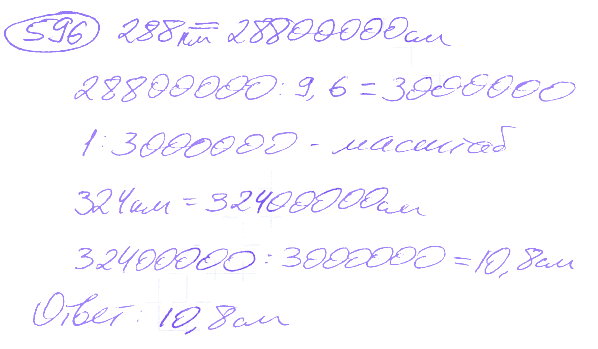 596 288км = 28800000см
28800000 : 9,6 = 3000000
1 : 3000000 - масштаб
324км = 32400000см
32400000 : 3000000 = 10,8см
Ответ: 10,8см